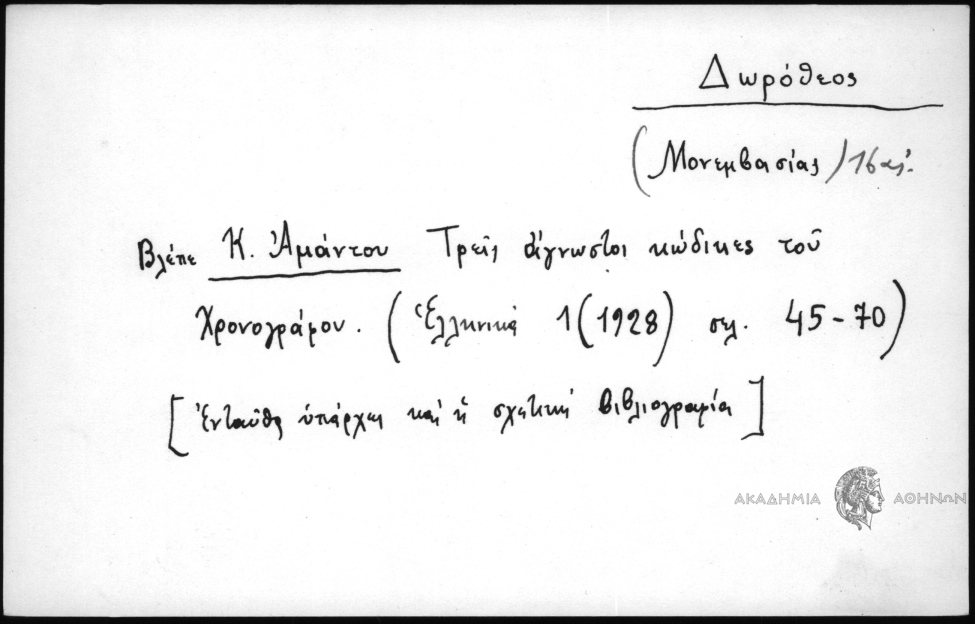 Δωρόθεος
(Μονεμβασίας) 16 αἰ.
Βλέπε Κ. Ἀμάντου Τρεῖς ἄγνωστοι κώδικες τοῦ
Χρονογράφου. (Ἑλληνικά 1 (1928) σελ. 45-70)
[Ἐνταῦθα ὑπάρχει καί ἡ σχετική βιβλιογραφία]
ΑΚΑΔΗΜΙΑ ΑΘΗΝΩΝ